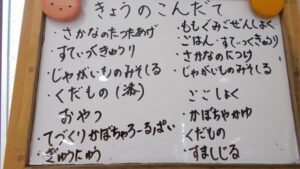 きょうのこんだて
・さかなのたつたあげ
・すてぃっくきゅうり
・じゃがいものみそしる
・くだもの(漆)
おやつ
・てづくりかぼちゃろーるぱい
・ぎゅうにゅう
・もしぐみだぜんしょく
・ごはん・すてぃっくきゅうり
・さかなのにつけ
・じゃがいものみそしる
ごごしょく
・かぼちゃかゆ
・くだもの
・すましじる